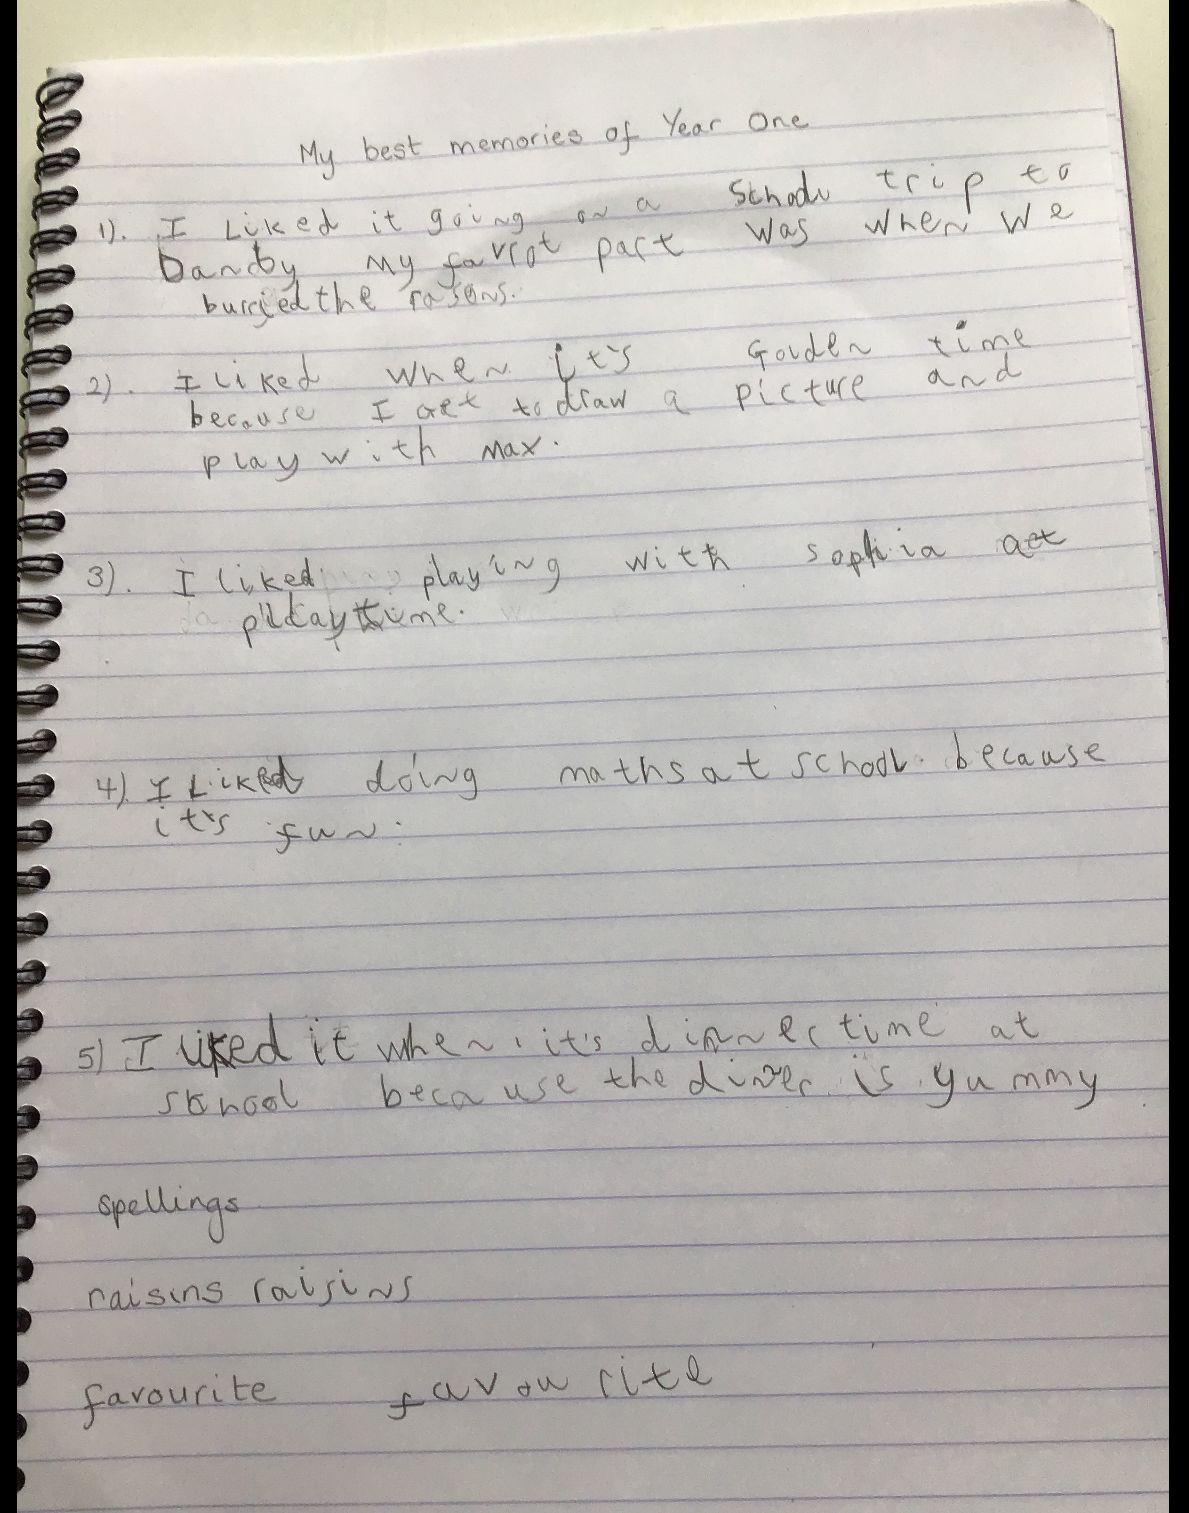 My best memories of Year One
1). I Liked it going on a School trip to
Danby My favrot part was when we
burried the rasens.
2). I liked when it's Golden time
because I Get to draw a picture and
play with Max.
3). I liked playing with sophia at
playtime.
4). I Liked doing maths at school because
it's fun.
5) I liked it when it's dinner time at
school because the diner is yummy
spellings
raisins raisins
favourite favourite